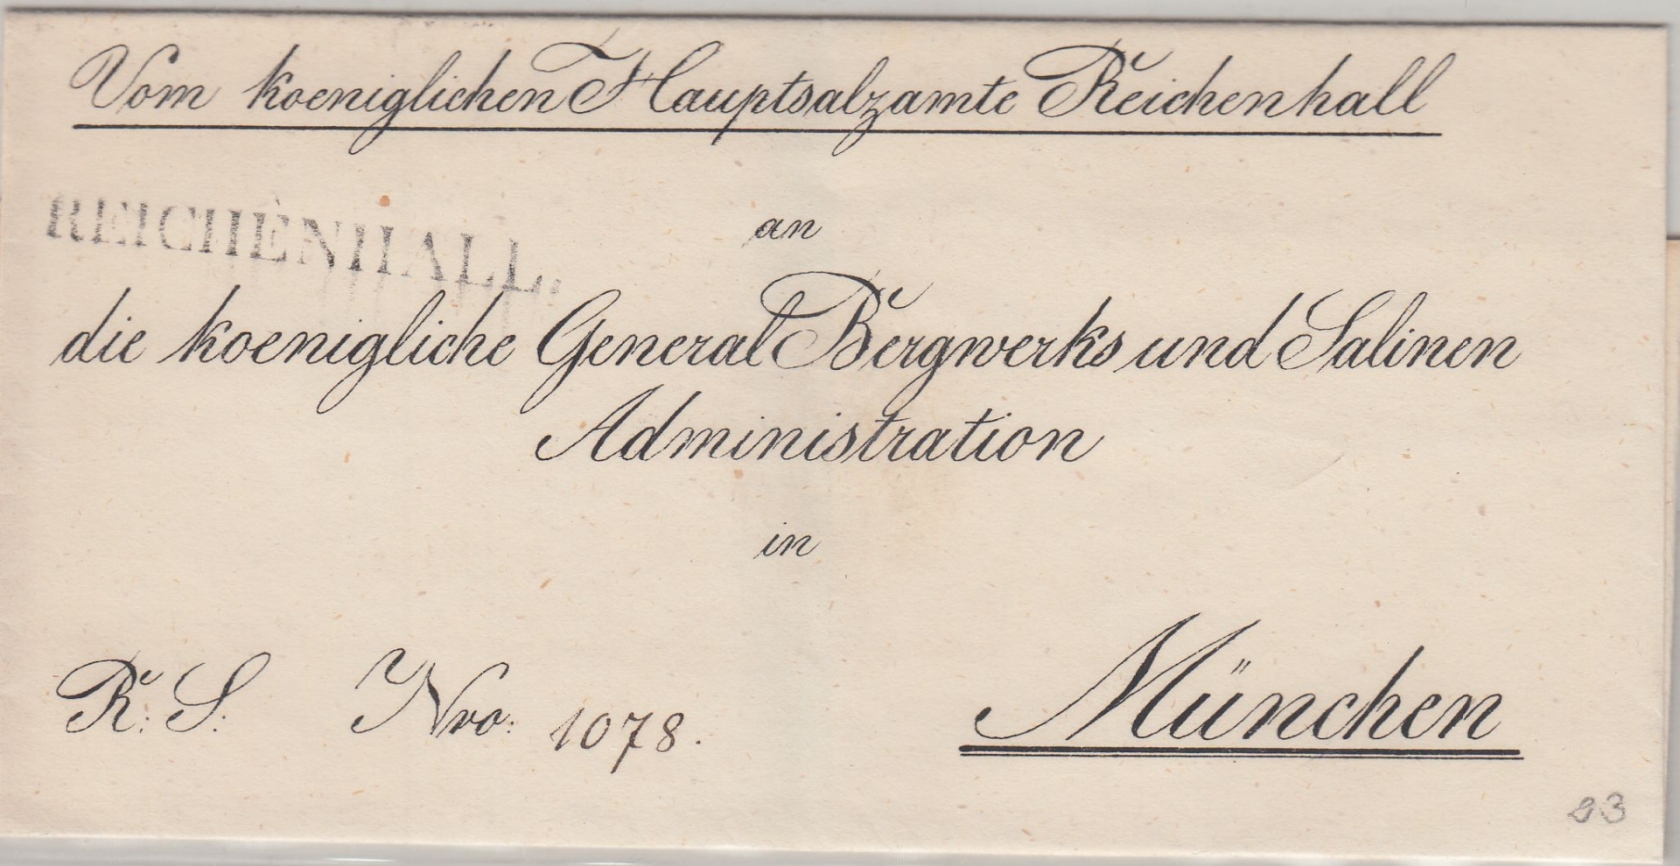 Vom koeniglichen Hauptsalzamte Reichenhall
REICHENHALL.
an
die koenigliche General Bergwerks und Salinen
Administration
in
R: S: Nro: 1078.
München
93